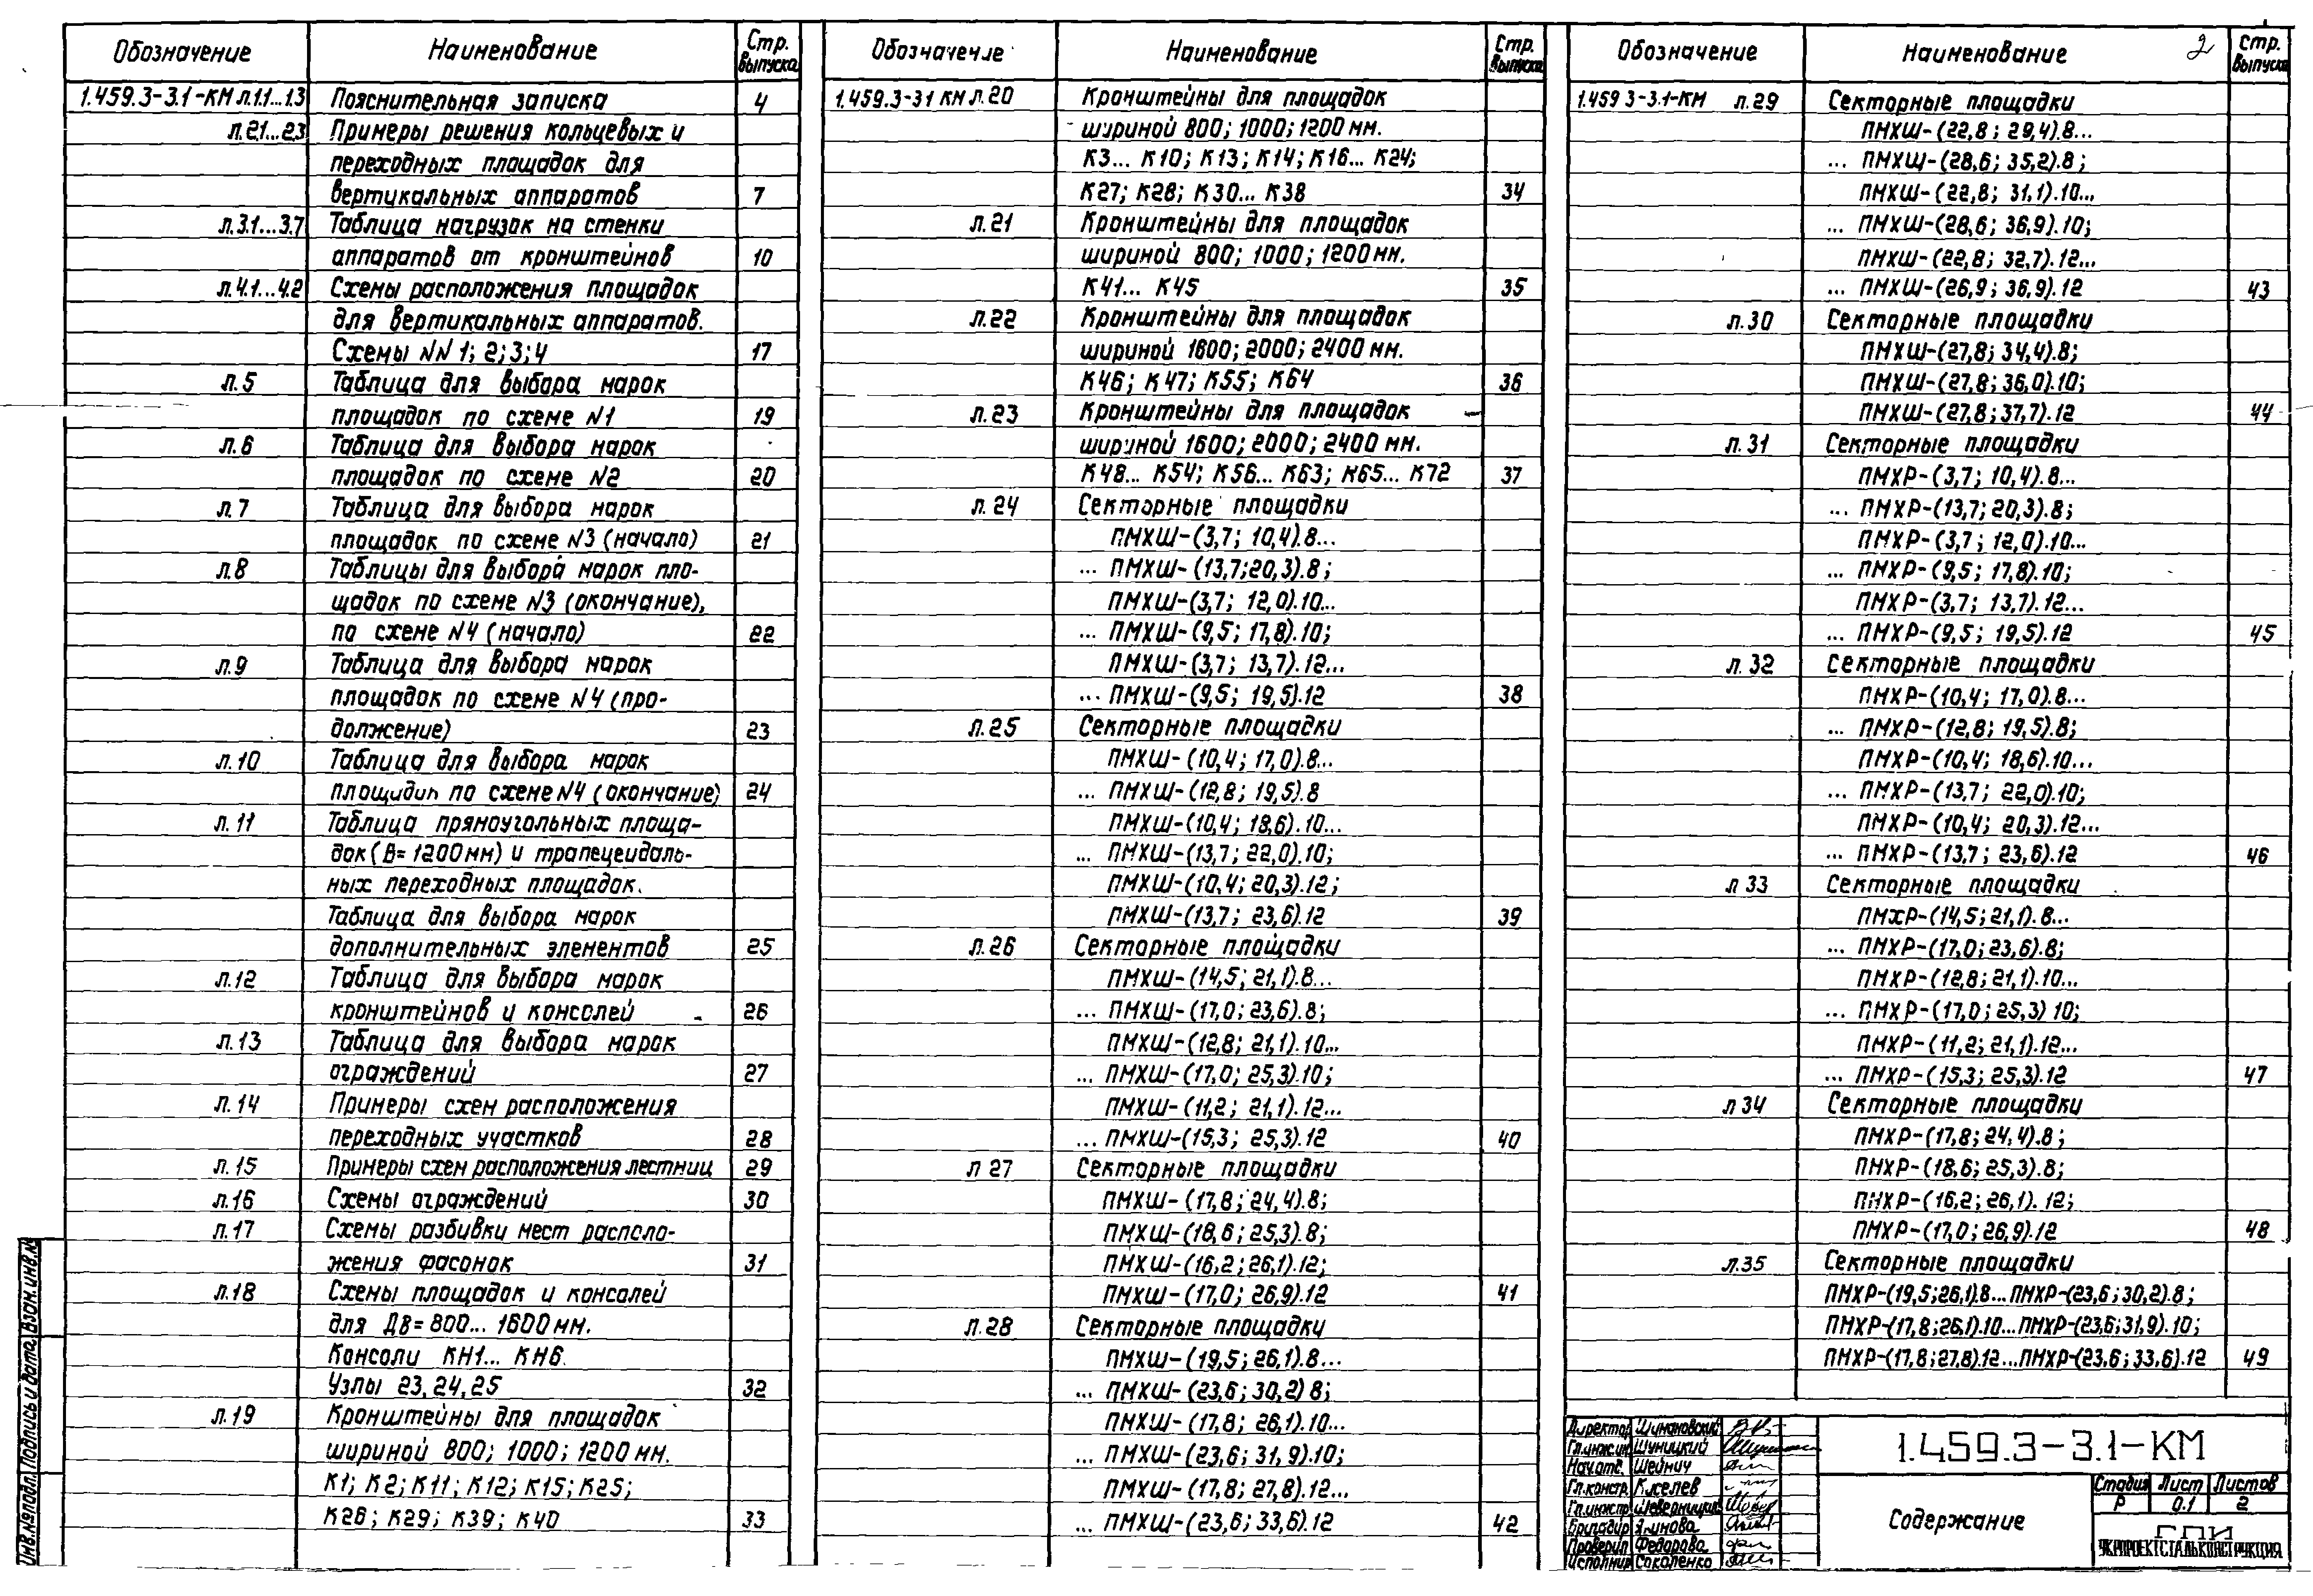 Обозначение Наименование Стр. выпуска
1.459.3-3.1-КМ л.1.1...1.3 Пояснительная записка 4
л.2.1...2.3 Примеры решения кольцевых и
переходных площадок для
вертикальных аппаратов 7
л.3.1...3.7 Таблица нагрузок на стенки
аппаратов от кронштейнов 10
л.4.1...4.2 Схемы расположения площадок
для вертикальных аппаратов.
Схемы NN 1; 2; 3; 4 17
л.5 Таблица для выбора марок
площадок по схеме N1 19
л.6 Таблица для выбора марок
площадок по схеме N2 20
л.7 Таблица для выбора марок
площадок по схеме N3 (начало) 21
л.8 Таблицы для выбора марок пло-
щадок по схеме N3 (окончание),
по схеме N4 (начало) 22
л.9 Таблица для выбора марок
площадок по схеме N4 (про-
должение) 23
л.10 Таблица для выбора марок
площадок по схеме N4 (окончание) 24
л.11 Таблица прямоугольных площа-
док (В=1200мм) и трапецеидаль-
ных переходных площадок.
Таблица для выбора марок
дополнительных элементов 25
л.12 Таблица для выбора марок
кронштейнов и консолей 26
л.13 Таблица для выбора марок
ограждений 27
л.14 Примеры схем расположения
переходных участков 28
л.15 Примеры схем расположения лестниц 29
л.16 Схемы ограждений 30
л.17 Схемы разбивки мест располо-
жения фасонок 31
л.18 Схемы площадок и консолей
для ДВ=800...1600мм.
Консоли КН1...КН6.
Узлы 23, 24, 25 32
л.19 Кронштейны для площадок
шириной 800; 1000; 1200 мм.
К1; К2; К11; К12; К15; К25;
К26; К29; К39; К40 33
Обозначение Наименование Стр. выпуска
1.459.3-3.1 КМ л.20 Кронштейны для площадок
шириной 800; 1000; 1200 мм.
К3...К10; К13; К14; К16...К24;
К27; К28; К30...К38 34
л.21 Кронштейны для площадок
шириной 800; 1000; 1200 мм.
К41...К45 35
л.22 Кронштейны для площадок
шириной 1600; 2000; 2400 мм.
К46; К47; К55; К64 36
л.23 Кронштейны для площадок
шириной 1600; 2000; 2400 мм.
К48...К54; К56...К63; К65...К72 37
л.24 Секторные площадки
ПМХШ-(3,7; 10,4).8...
... ПМХШ-(13,7; 20,3).8;
ПМХШ-(3,7; 12,0).10...
... ПМХШ-(9,5; 17,8).10;
ПМХШ-(3,7; 13,7).12...
... ПМХШ-(9,5; 19,5).12 38
л.25 Секторные площадки
ПМХШ-(10,4; 17,0).8...
... ПМХШ-(12,8; 19,5).8
ПМХШ-(10,4; 18,6).10...
... ПМХШ-(13,7; 22,0).10;
ПМХШ-(10,4; 20,3).12;
ПМХШ-(13,7; 23,6).12 39
л.26 Секторные площадки
ПМХШ-(14,5; 21,1).8...
... ПМХШ-(17,0; 23,6).8;
ПМХШ-(12,8; 21,1).10...
... ПМХШ-(17,0; 25,3).10;
ПМХШ-(11,2; 21,1).12...
... ПМХШ-(15,3; 25,3).12 40
л 27 Секторные площадки
ПМХШ-(17,8; 24,4).8;
ПМХШ-(18,6; 25,3).8;
ПМХШ-(16,2; 26,1).12;
ПМХШ-(17,0; 26,9).12 41
л.28 Секторные площадки
ПМХШ-(19,5; 26,1).8...
... ПМХШ-(23,6; 30,2) 8;
ПМХШ-(17,8; 26,1).10...
... ПМХШ-(23,6; 31,9).10;
ПМХШ-(17,8; 27,8).12...
... ПМХШ-(23,6; 33,6).12 42
Обозначение Наименование 2 Стр. выпуска
1.459 3-3.1-КМ л.29 Секторные площадки
ПМХШ-(22,8; 29,4).8...
... ПМХШ-(28,6; 35,2).8;
ПМХШ-(22,8; 31,1).10...
... ПМХШ-(28,6; 36,9).10;
ПМХШ-(22,8; 32,7).12...
... ПМХШ-(26,9; 36,9).12 43
л.30 Секторные площадки
ПМХШ-(27,8; 34,4).8;
ПМХШ-(27,8; 36,0).10;
ПМХШ-(27,8; 37,7).12 44
л.31 Секторные площадки
ПМХР-(3,7; 10,4).8...
... ПМХР-(13,7; 20,3).8;
ПМХР-(3,7; 12,0).10...
... ПМХР-(9,5; 17,8).10;
ПМХР-(3,7; 13,7).12...
... ПМХР-(9,5; 19,5).12 45
л.32 Секторные площадки
ПМХР-(10,4; 17,0).8...
... ПМХР-(12,8; 19,5).8;
ПМХР-(10,4; 18,6).10...
... ПМХР-(13,7; 22,0).10;
ПМХР-(10,4; 20,3).12...
... ПМХР-(13,7; 23,6).12 46
л 33 Секторные площадки
ПМХР-(14,5; 21,1).8...
... ПМХР-(17,0; 23,6).8;
ПМХР-(12,8; 21,1).10...
... ПМХР-(17,0; 25,3) 10;
ПМХР-(11,2; 21,1).12...
... ПМХР-(15,3; 25,3).12 47
л 34 Секторные площадки
ПМХР-(17,8; 24,4).8;
ПМХР-(18,6; 25,3).8;
ПМХР-(16,2; 26,1).12;
ПМХР-(17,0; 26,9).12 48
л.35 Секторные площадки
ПМХР-(19,5; 26,1).8...ПМХР-(23,6; 30,2).8;
ПМХР-(17,8; 26,1).10...ПМХР-(23,6; 31,9).10;
ПМХР-(17,8; 27,8).12...ПМХР-(23,6; 33,6).12 49
Директор Шимановский
Гл.инж.ин Шуницкий
Нач.отд. Шейнич
Гл.констр. Киселев
Гл.инж.пр. Шеверницкий
Бригадир
Проверил Федорова
Исполнил Соколенко
1.459.3-3.1-КМ
Содержание
Стадия Лист Листов
Р 0.1 2
ГПИ
УКРПРОЕКТСТАЛЬКОНСТРУКЦИЯ
Инв.№ подл. Подпись и дата Взам. инв.№